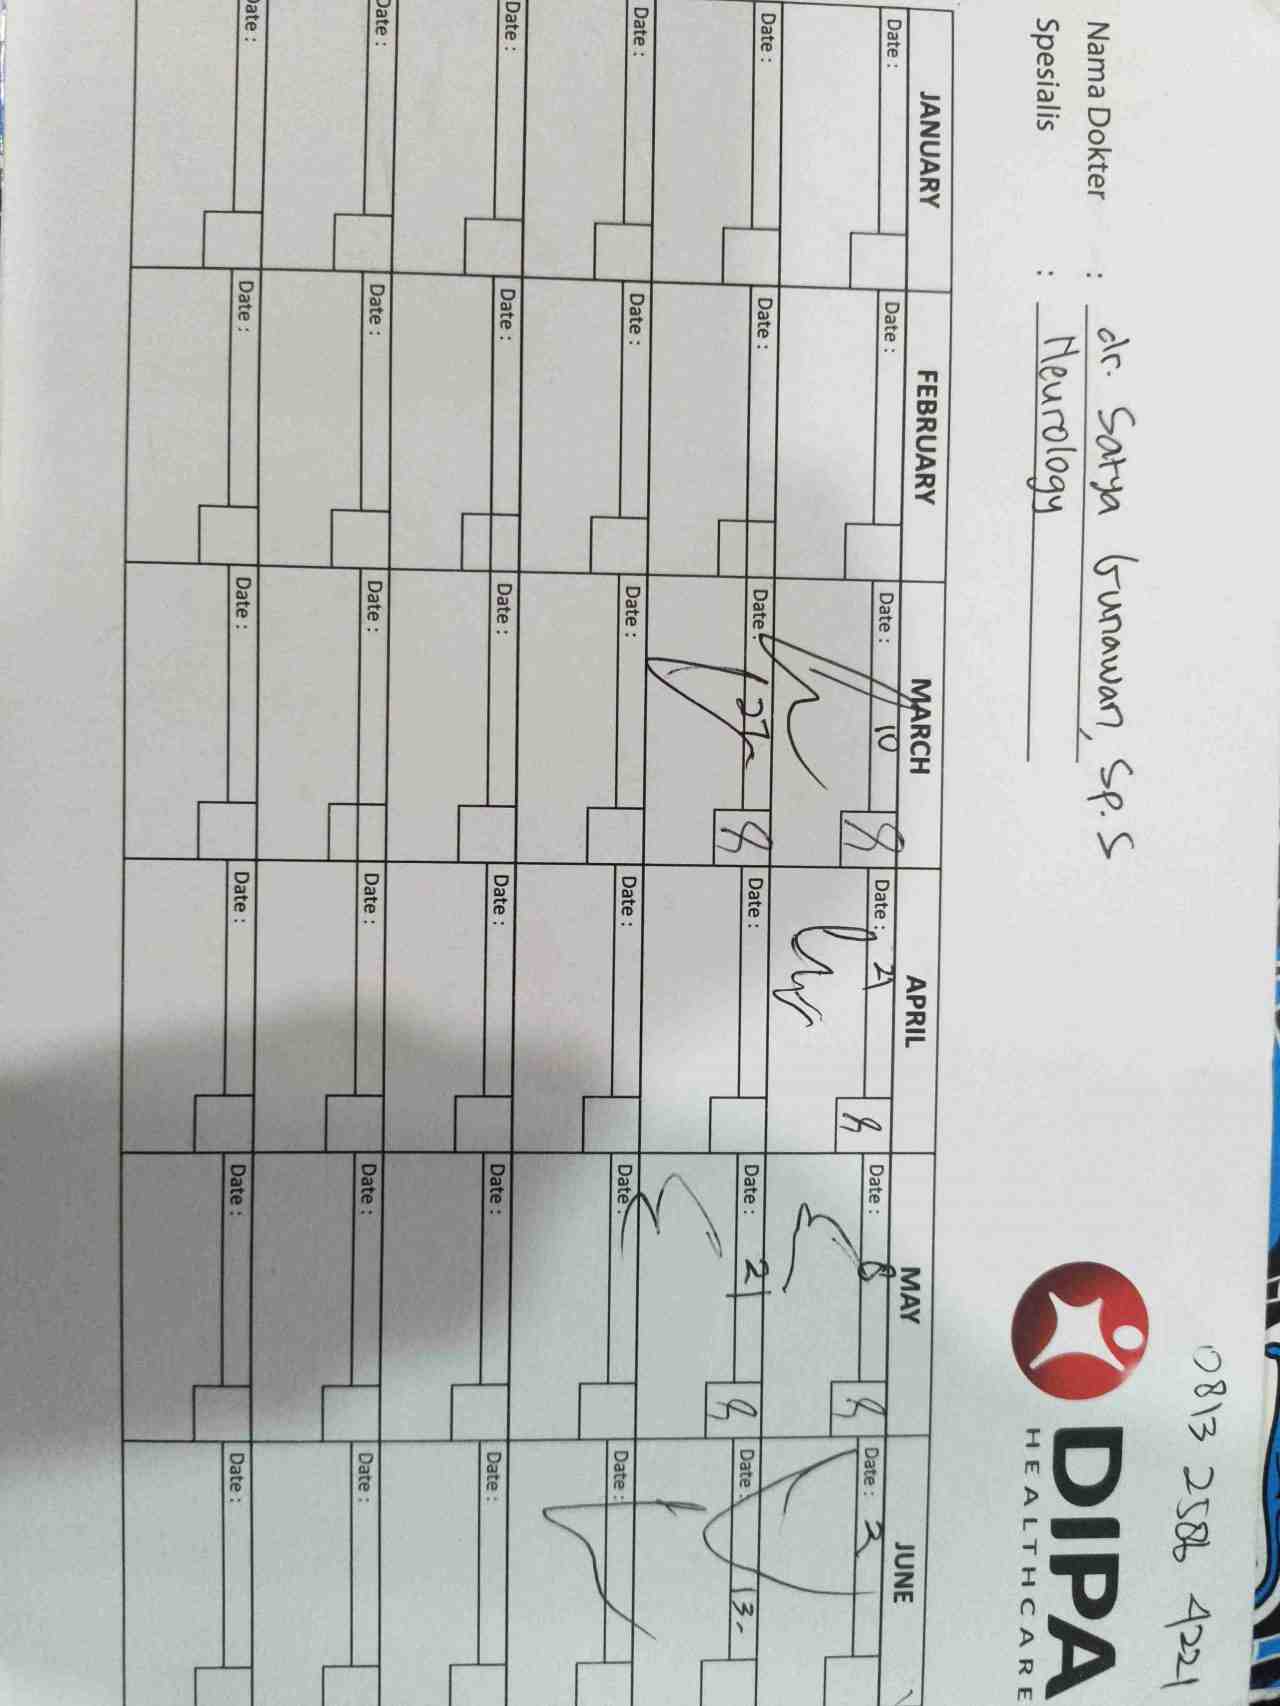 0813 2586 4221
Nama Dokter : dr. Satya Gunawan, Sp.S
Spesialis : Neurology
DIPA
HEALTHCARE
JANUARY FEBRUARY MARCH APRIL MAY JUNE
Date : Date : Date : 10 Date : 21 Date : 8 Date : 2
Date : Date : Date : 27 Date : Date : 21 Date : 13
Date : Date : Date : Date : Date : Date :
Date : Date : Date : Date : Date : Date :
Date : Date : Date : Date : Date : Date :
Date : Date : Date : Date : Date : Date :